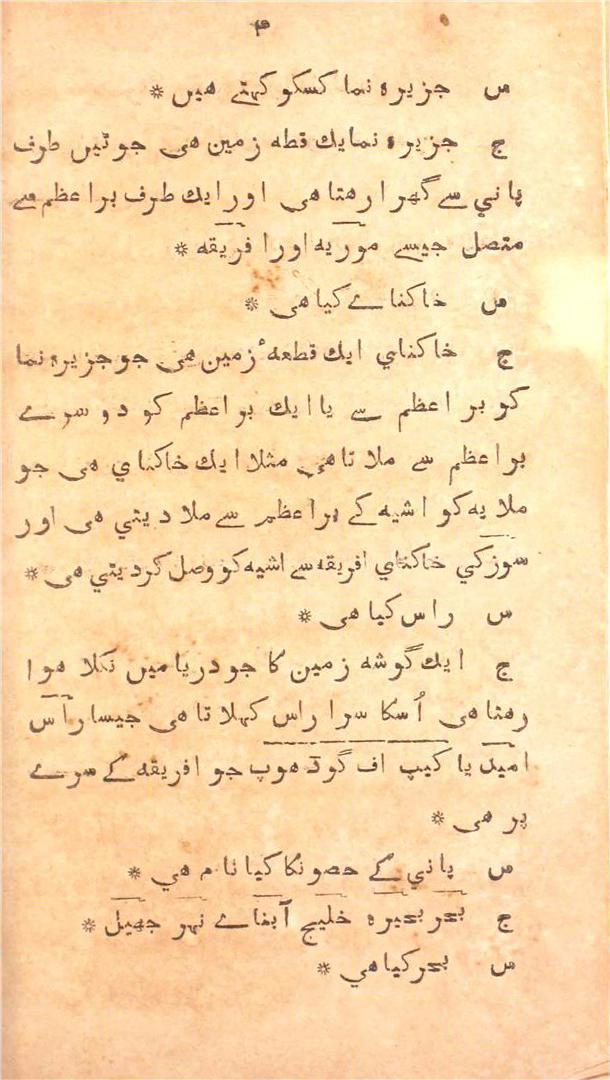 ۴
س جزیرہ نما کسکو کہتے هیں *
ج جزیرہ نما یك قطہ زمین هی جو تیں طرف
پاني سے گھرا رهتا هی اور ایك طرف براعظم سے
متصل جیسے موریہ اور افریقہ *
س خاکناے کیا هی *
ج خاکناي ایك قطعہٴ زمین هی جو جزیرہ نما
کو بر اعظم سے یا ایك بر اعظم کو دوسرے
براعظم سے ملاتا هی مثلا ایك خاکناي هی جو
ملایہ کو اشیہ کے براعظم سے ملا دیتي هی اور
سوز کي خاکناي افریقہ سے اشیہ کو وصل کر دیتي هی *
س راس کیا هی *
ج ایك گوشہ زمین کا جو دریا میں نکلا هوا
رهتا هی اُسکا سرا راس کہلاتا هی جیسا راس
امید یا کیپ اف گودهوپ جو افریقہ کے سرے
پر هی *
س پاني کے حصونکا کیا نام هي *
ج بحر بحیرہ خلیج آبناے نہر جھیل *
س بحر کیا هي *